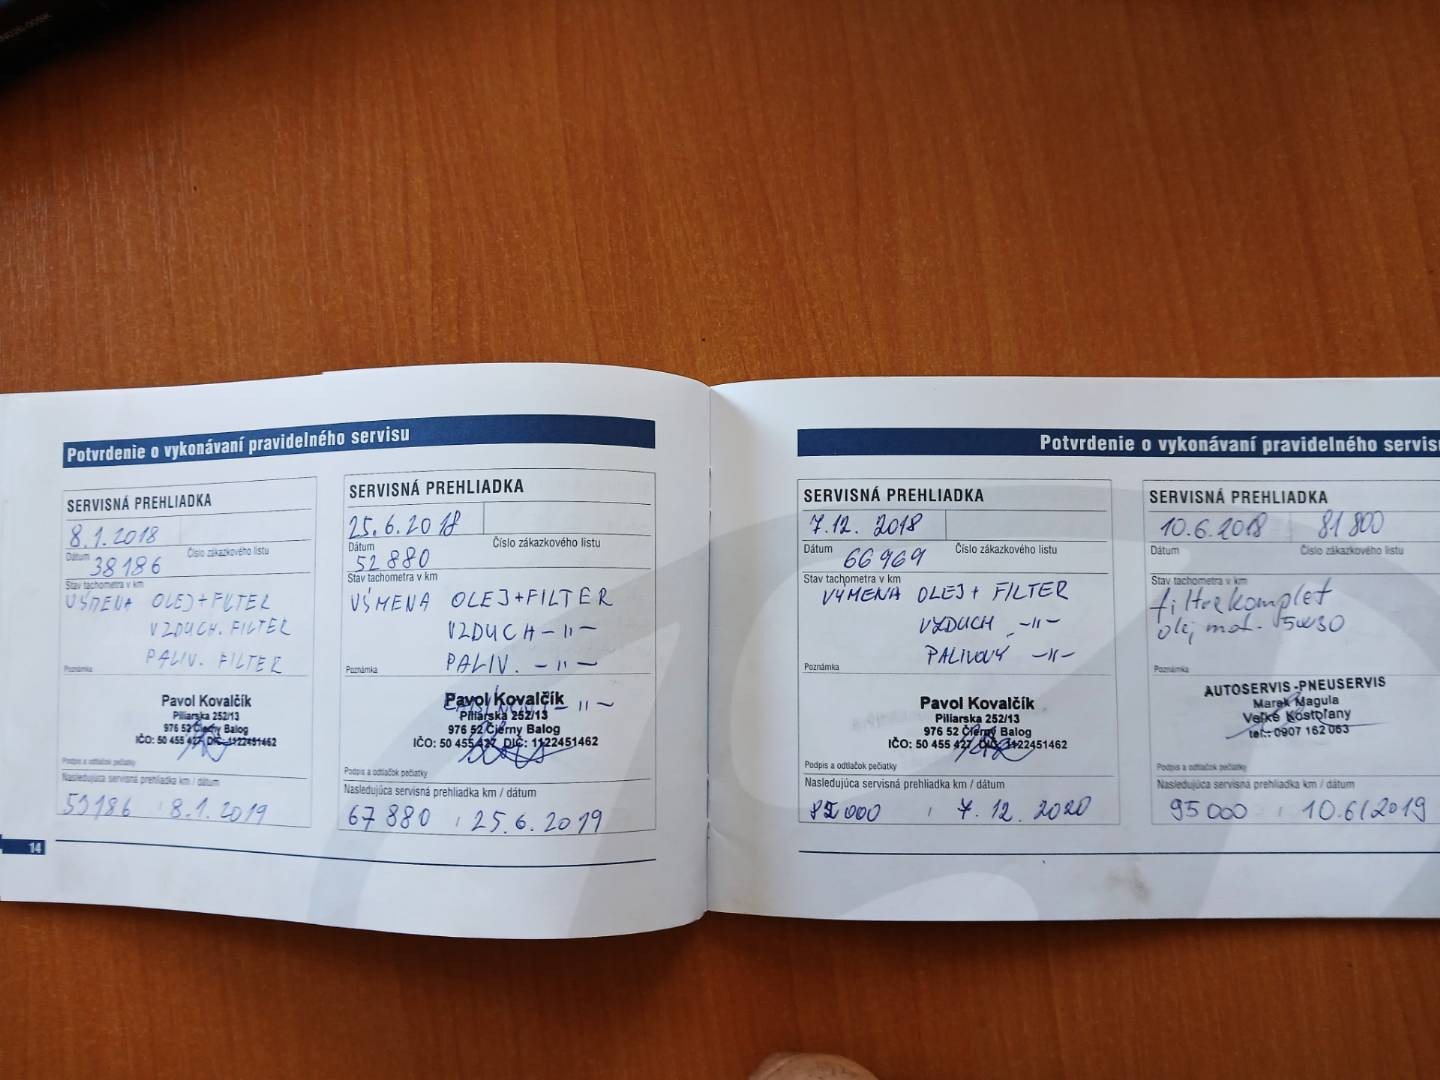 Potvrdenie o vykonávaní pravidelného servisu
SERVISNÁ PREHLIADKA
8.1.2018
Dátum
Číslo zákazkového listu
38186
Stav tachometra v km
VÝMENA OLEJ+FILTER
VZDUCH. FILTER
PALIV. FILTER
Poznámka
Pavol Kovalčík
Piliarska 252/13
976 52 Čierny Balog
IČO: 50 455 427 DIČ: 1122451462
Podpis a odtlačok pečiatky
Nasledujúca servisná prehliadka km / dátum
8.1.2019
14
SERVISNÁ PREHLIADKA
25.6.2018
Dátum
Číslo zákazkového listu
52880
Stav tachometra v km
VÝMENA OLEJ+FILTER
VZDUCH -"-
PALIV. -"-
Poznámka
-"-
Pavol Kovalčík
Piliarska 252/13
976 52 Čierny Balog
IČO: 50 455 427 DIČ: 1122451462
Podpis a odtlačok pečiatky
Nasledujúca servisná prehliadka km / dátum
67 880 , 25.6.2019
Potvrdenie o vykonávaní pravidelného servisu
SERVISNÁ PREHLIADKA
7.12. 2018
Dátum
Číslo zákazkového listu
66969
Stav tachometra v km
VÝMENA OLEJ+ FILTER
VZDUCH -"-
PALIVOVÝ -"-
Poznámka
Pavol Kovalčík
Piliarska 252/13
976 52 Čierny Balog
IČO: 50 455 427 DIČ: 1122451462
Podpis a odtlačok pečiatky
Nasledujúca servisná prehliadka km / dátum
82000 , 7.12.2020
SERVISNÁ PREHLIADKA
10.6.2018 81800
Dátum
Číslo zákazkového listu
Stav tachometra v km
filtre komplet
olej mot. 5w30
Poznámka
AUTOSERVIS-PNEUSERVIS
Marek Magula
Veľké Kostoľany
tel.: 0907 162 063
Podpis a odtlačok pečiatky
Nasledujúca servisná prehliadka km / dátum
95000 , 10.6/2019